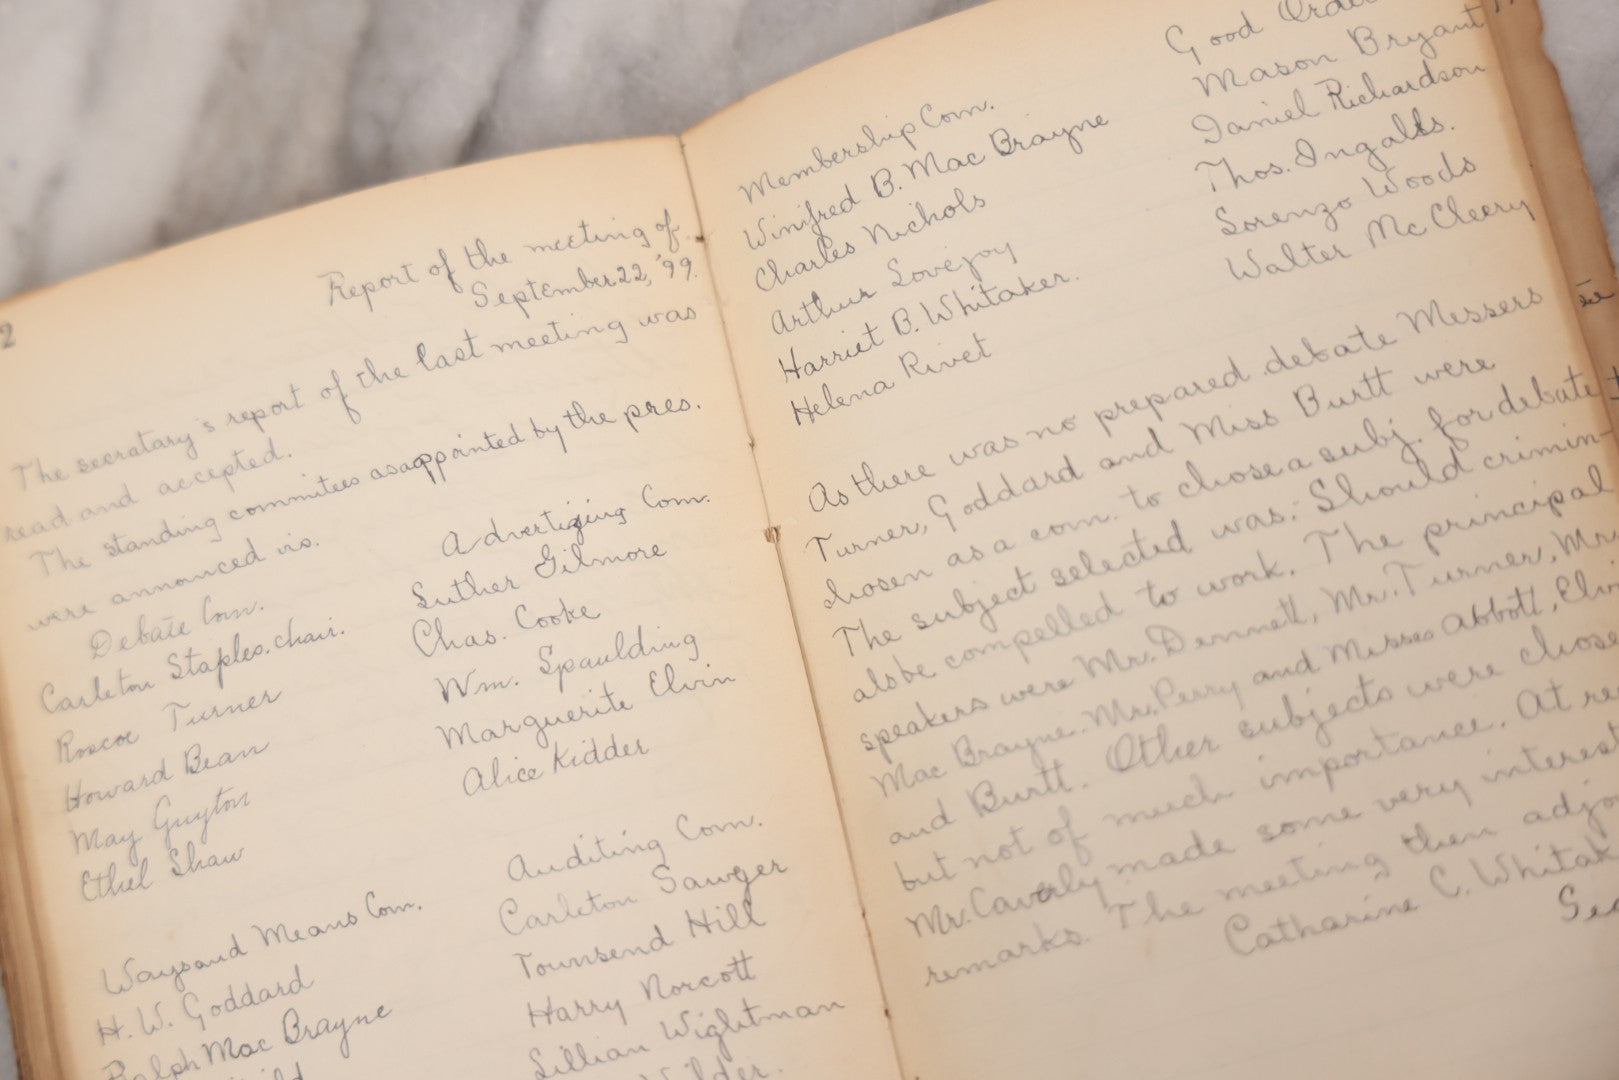 2
Report of the meeting of
September 22, '99.
The secratary's report of the last meeting was
read and accepted.
The standing commitees as appointed by the pres.
were announced vis.
Debate Com.
Carleton Staples. chair.
Roscoe Turner
Howard Bean
May Guyton
Ethel Shaw
Ways and Means Com.
H. W. Goddard
Ralph Mac Brayne
Advertizing Com.
Luther Gilmore
Chas. Cooke
Wm. Spaulding
Marguerite Elvin
Alice Kidder
Auditing Com.
Carleton Sawyer
Townsend Hill
Harry Norcott
Lillian Wightman
Wilder.
Membership Com.
Winifred B. Mac Brayne
Charles Nichols
Arthur Lovejoy
Harriet B. Whitaker.
Helena Rivet
Good Order
Mason Bryant
Daniel Richardson
Thos. Ingalls.
Lorenzo Woods
Walter McCleery
As there was no prepared debate Messers
Turner, Goddard and Miss Burtt were
chosen as a com. to chose a subj. for debate
The subject selected was: Should crimin-
als be compelled to work. The principal
speakers were Mr. Dennett, Mr. Turner, Mr.
Mac Brayne. Mr. Perry and Misses Abbott, Elvin
and Burtt. Other subjects were chose
but not of much importance. At re
Mr. Caverly made some very interest
remarks. The meeting then adjo
Catharine C. Whitak
Sec